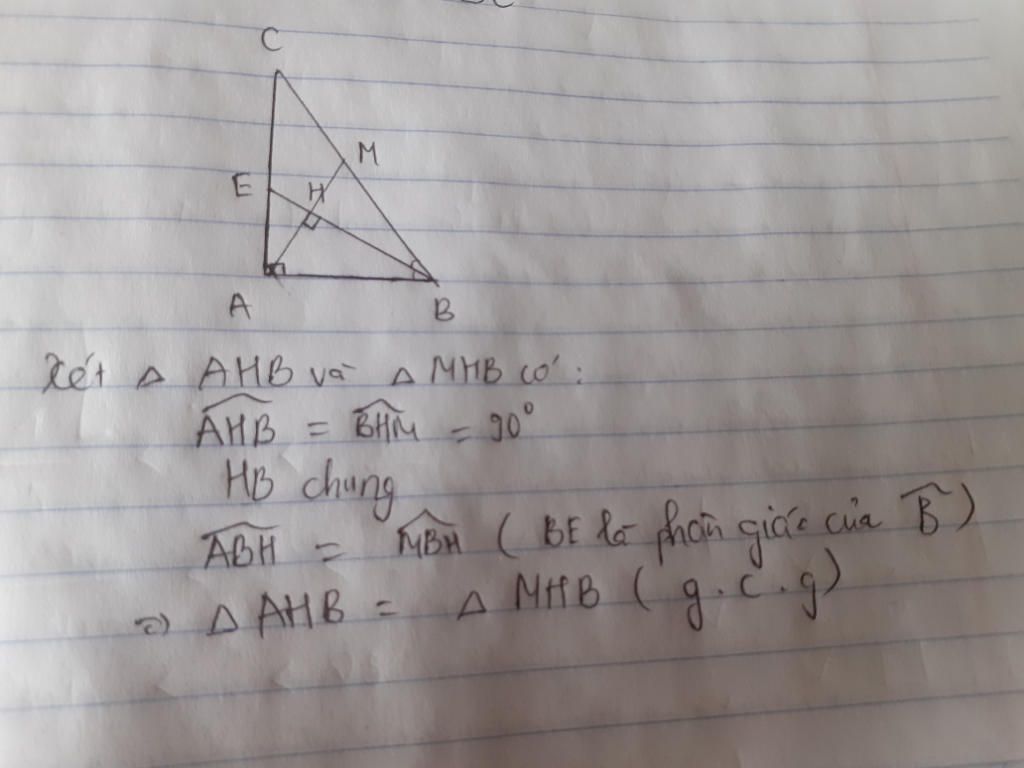 C
M
E
H
A
B
Xét △ AHB và △ MHB có:
$\widehat{AHB}$ = $\widehat{BHM}$ = 90°
HB chung
$\widehat{ABH}$ = $\widehat{MBH}$ ( BE là phân giác của $\widehat{B}$ )
=> △ AHB = △ MHB ( g.c.g)